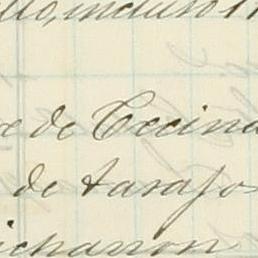 llo, incluso 1
re de Cecina
de tasajo
icharron